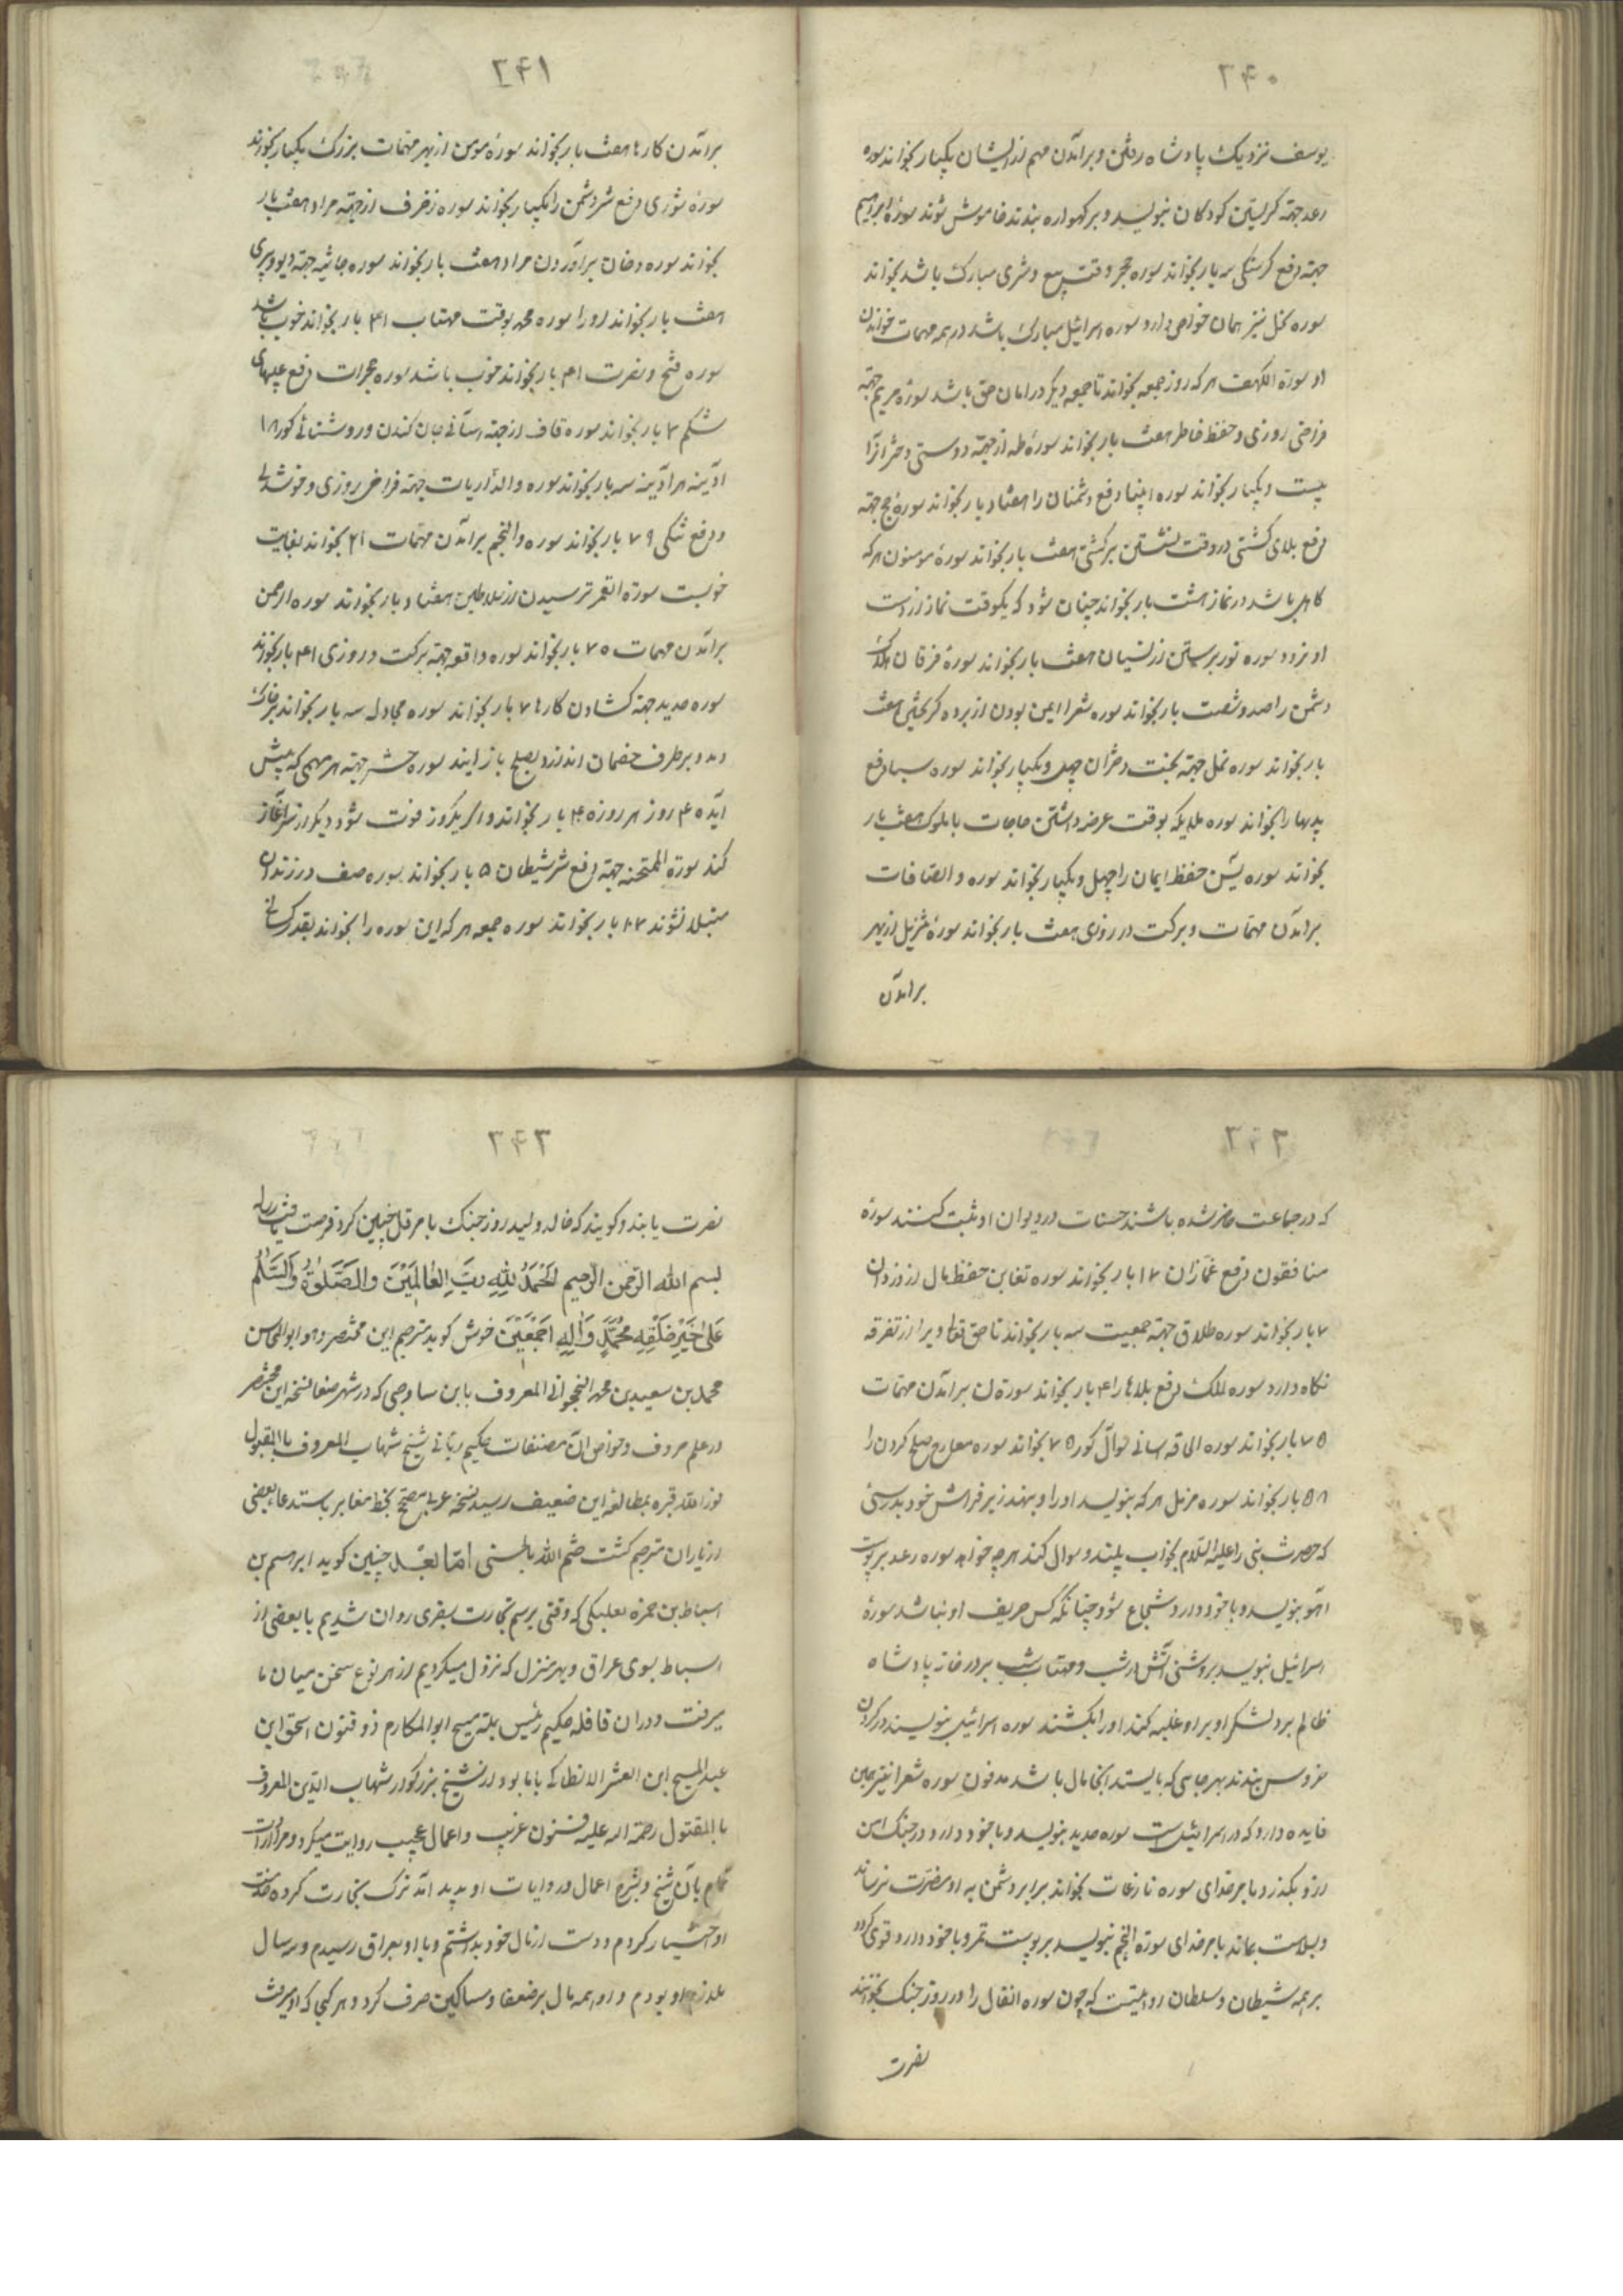 ۲۴۰
یوسف نزدیک پادشاه رفتن و برآمدن مهم از ایشان یکبار بخواند سوره
رعد جهة کریستن کودکان بنویسد و بر کهواره بندند خاموش شوند سورة ابراهیم
جهة دفع کرسنکی سه بار بخواند سوره حجر وقت بیع و شری مبارک باشد بخواند
سوره نحل نیز همان خواص دارد سوره اسرائیل مبارک باشد در همه مهمات خواندن
او سورة الکهف هر که روز جمعه بخواند تا جمعه دیکر در امان حق باشد سورة مریم جهة
فراخی روزی و حفظ خاطر هفت بار بخواند سورة طه از جهة دوستی دختر آنرا
بیست و یکبار بخواند سوره انبیا دفع دشمنان را هفتاد بار بخواند سورة حج جهة
دفع بلای کشتی در وقت نشستن بر کشتی هفت بار بخواند سورة مومنون هر که
کاهل باشد در نماز هشت بار بخواند چنان شود که یکوقت نماز از دست
او نرود سوره نور برستن از نسیان هفت بار بخواند سورة فرقان هلاک
دشمن را صد و شصت بار بخواند سوره شعرا ایمن بودن از برده کریختن هفت
بار بخواند سوره نمل جهة بخت دختران چهل و یکبار بخواند سوره سبا دفع
بدیها را بخواند سوره ملایکه بوقت عرضه داشتن حاجات با ملوک هفت بار
بخواند سوره یٓس حفظ ایمان را چهل و یکبار بخواند سوره والصافات
برآمدن مهمات و برکت در روزی هفت بار بخواند سورة تنزیل از بهر
برآمدن
۲۴۱
برآمدن کارها هفت بار بخواند سورة مومن از بهر مهمات بزرک یکبار بخواند
سورة شوری دفع شر دشمن را یکبار بخواند سوره زخرف از جهة مراد هفت بار
بخواند سوره دخان برآوردن مراد هفت بار بخواند سوره جاثیه جهة دیو و پری
هفت بار بخواند او را سوره محمد بوقت مهتاب ۴۱ بار بخواند خوب باشد
سوره فتح و نصرت ۴۱ بار بخواند خوب باشد سوره حجرات دفع علتهای
شکم ۷ بار بخواند سوره قاف از جهة آسانی جان کندن و روشنائی کور ۱۸
آدینه هر آدینه سه بار بخواند سوره والذاریات جهة فراخی روزی و خوشدلی
و دفع تنکی ۷۹ بار بخواند سوره والنجم برآمدن مهمات ۲۱ بخواند بغایت
خوبست سورة القمر ترسیدن از سلاطین هفتاد بار بخواند سوره الرحمن
برآمدن مهمات ۷۵ بار بخواند سوره واقعه جهة برکت در روزی ۴۱ بار بخواند
سوره حدید جهة کشادن کارها ۷ بار بخواند سوره مجادله سه بار بخواند بر خاک
دمد و بر طرف خصمان اندازد بصلح باز آیند سوره حشر جهة هر مهمی که پیش
آید ۴۰ روز هر روزه ۴ بار بخواند و اکر یکروز فوت شود دیکر از سر آغاز
کند سورة الممتحنه جهة دفع شر شیطان ۵ بار بخواند سوره صف در زندان
مبتلا نشوند بار بخواند سوره جمعه هر که این سوره را بخواند بقدر کسانی
۲۴۲
که در جماعت حاضر شده باشند حسنات در دیوان او ثبت کنند سورة
منافقون دفع غمازان ۱۷ بار بخواند سوره تغابن حفظ مال از دزدان
۷ بار بخواند سوره طلاق جهة جمعیت سه بار بخواند تا حق تعالی ویرا از تفرقه
نکاه دارد سوره الملک دفع بلاها را ۴۱ بار بخواند سورة ن برآمدن مهمات
۷۵ بار بخواند سوره الحاقه آسانی سوال کور ۷۵ بخواند سوره معارج صلح کردن را
۵۸ بار بخواند سوره مزمل هر که بنویسد او را و بنهد زیر فراش خود بدرستی
که حضرت نبی را علیه السلام بخواب بیند و سوال کند هرچه خواهد سوره رعد بر پوست
آهو بنویسد و با خود دارد شجاع شود چنانکه کس حریف او نباشد سورة
اسرائیل بنویسد بروشنی آتش در شب و مهتاب شب بر در خانه پادشاه
ظالم برد لشکر او بر او غلبه کند او را بکشند سوره اسرائیل بنویسند در کردن
خروس بندند بهر جایی که بایستد آنجا مال باشد مدفون سوره شعرا نیز همین
فایده دارد که در اسرائیلست سوره حدید بنویسد و با خود دارد در جنک آهن
ازو بکذرد با مر خدای سوره نازعات بخواند برابر دشمن به او مضرت نرساند
و بسلامت بماند با مر خدای سورة النجم بنویسد بر پوست نمر و با خود دارد قوی کردد
بر همه شیطان و سلطان روایتست که چون سوره انفال را در روز جنک بخوانند
نصرت
۲۴۳
نصرت یابند و کویند که خالد ولید روز جنک با هرقل چنین کرد فرصت یافت
بسم الله الرحمن الرحیم الحمد لله رب العالمین والصلوة والسلم
علی خیر خلقه محمد وآله اجمعین خوش کوید مترجم این مختصر و هو ابو المحاسن
محمد بن سعید بن محمد النخجوانی المعروف بابن ساوجی که در شهر صنعا نسخه این مختصر
در علم حروف و خواص آن مصنفات حکیم ربانی شیخ شهاب المعروف با المقتول
نور الله قبره بمطالعه این ضعیف رسید نسخه عربی مصحح بخط مغابر باستدعا بعضی
از یاران مترجم کشت ختم الله بالحسنی اما بعد چنین کوید ابرهیم بن
اسباط بن حمزه بعلبکی که وقتی برسم تجارت بسفری روان شدیم با بعضی از
اسباط بسوی عراق و بهر منزل که نزول میکردیم از هر نوع سخن میان ما
میرفت و در ان قافله حکیم رئیس ملة مسیح ابو المکارم ذو فنون اسحق ابن
عبد المسیح ابن العشر الانطاکی با ما بود از شیخ بزرکوار شهاب الدین المعروف
با المقتول رحمة الله علیه فنون غریب و اعمال عجیب روایت میکرد و مرا ارادت
تمام بآن شیخ و شرح اعمال و روایات او پدید آمد ترک تجارت کرده خدمت
او اختیار کردم و دست از مال خود بداشتم و با او بعراق رسیدم و سه سال
ملازم او بودم و او همه مال بر ضعفا و مساکین صرف کرد و هر کجا که او میرفت